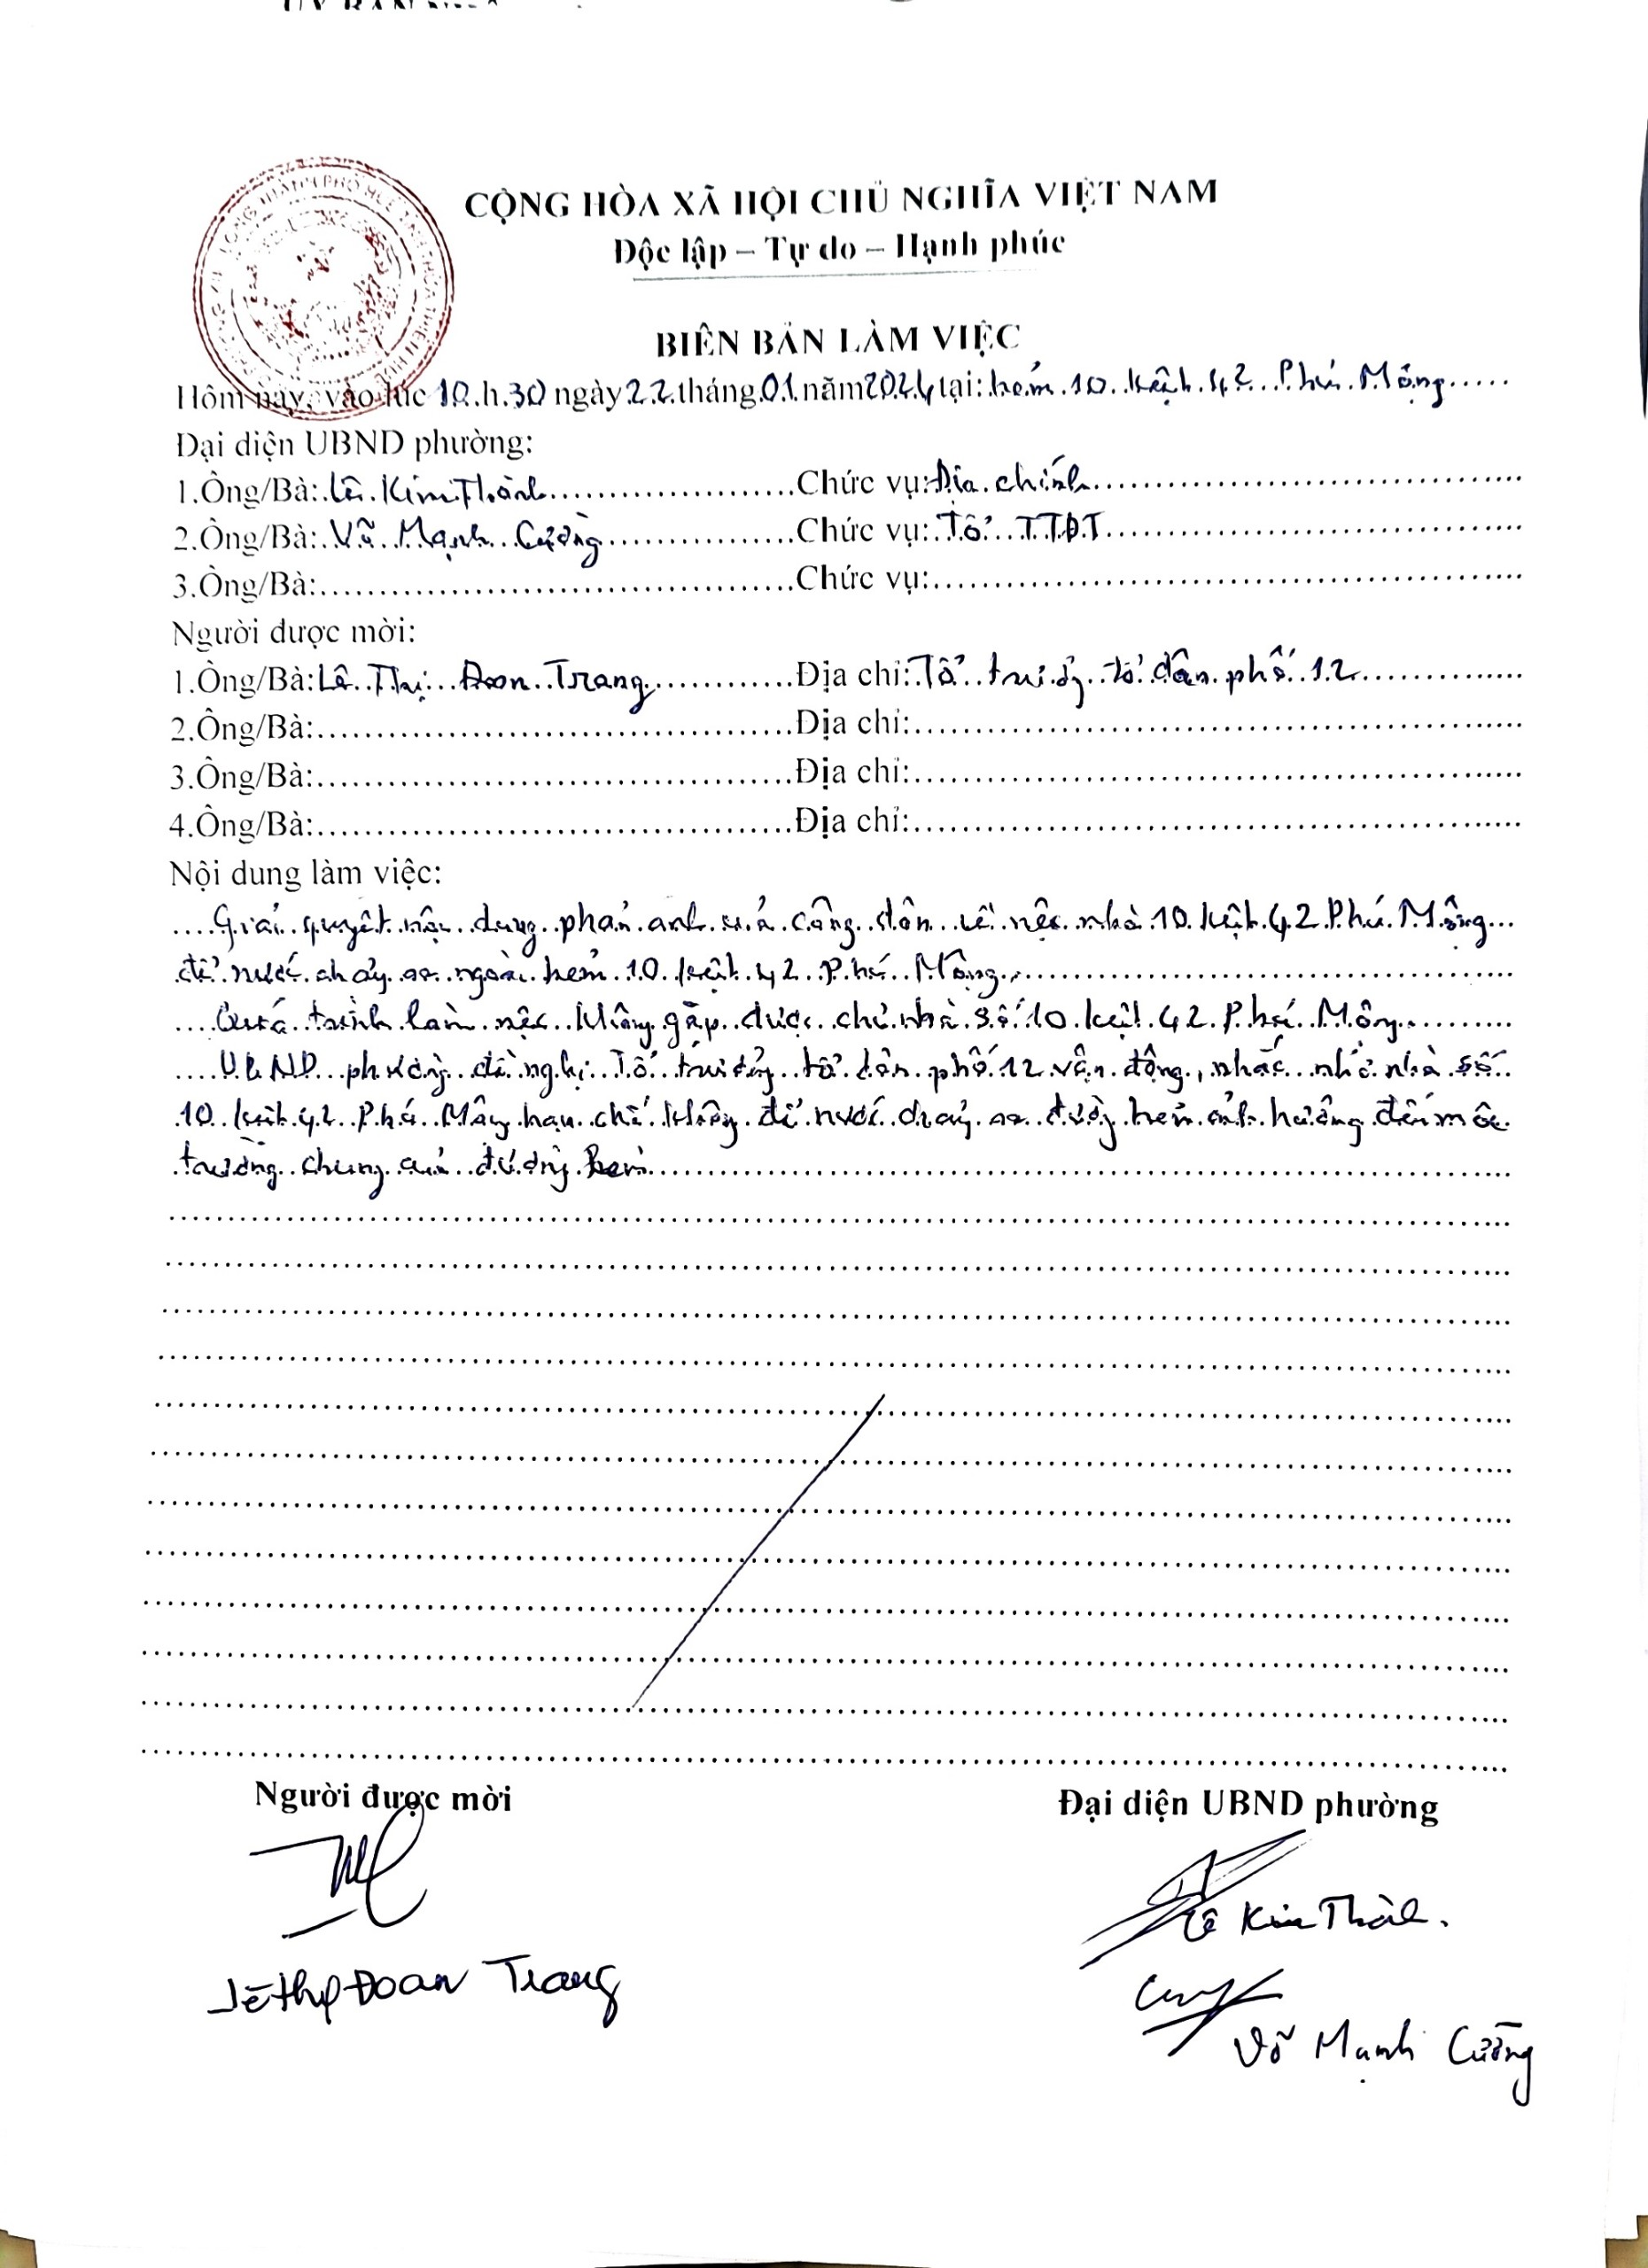 CỘNG HÒA XÃ HỘI CHỦ NGHĨA VIỆT NAM
Độc lập – Tự do – Hạnh phúc
BIÊN BẢN LÀM VIỆC
Hôm nay, vào lúc 10 h 30 ngày 22 tháng 01 năm 2024 tại: hẻm 10 kiệt 42 Phú Mộng
Đại diện UBND phường:
1.Ông/Bà: Lê Kim Thành Chức vụ: Địa chính
2.Ông/Bà: Võ Mạnh Cường Chức vụ: Tổ TTĐT
3.Ông/Bà: Chức vụ:
Người được mời:
1.Ông/Bà: Lê Thị Đoan Trang Địa chỉ: Tổ trưởng tổ dân phố 12
2.Ông/Bà: Địa chỉ:
3.Ông/Bà: Địa chỉ:
4.Ông/Bà: Địa chỉ:
Nội dung làm việc:
Giải quyết nội dung phản ánh của công dân về việc nhà 10 kiệt 42 Phú Mộng
để nước chảy ra ngoài hẻm 10 kiệt 42 Phú Mộng.
Quá trình làm việc không gặp được chủ nhà số 10 kiệt 42 Phú Mộng.
UBND phường đề nghị Tổ trưởng tổ dân phố 12 vận động, nhắc nhở nhà số
10 kiệt 42 Phú Mộng hạn chế không để nước chảy ra đường hẻm ảnh hưởng đến môi
trường chung của đường hẻm
Người được mời Đại diện UBND phường
Lê Kim Thành.
Lê Thị Đoan Trang
Võ Mạnh Cường